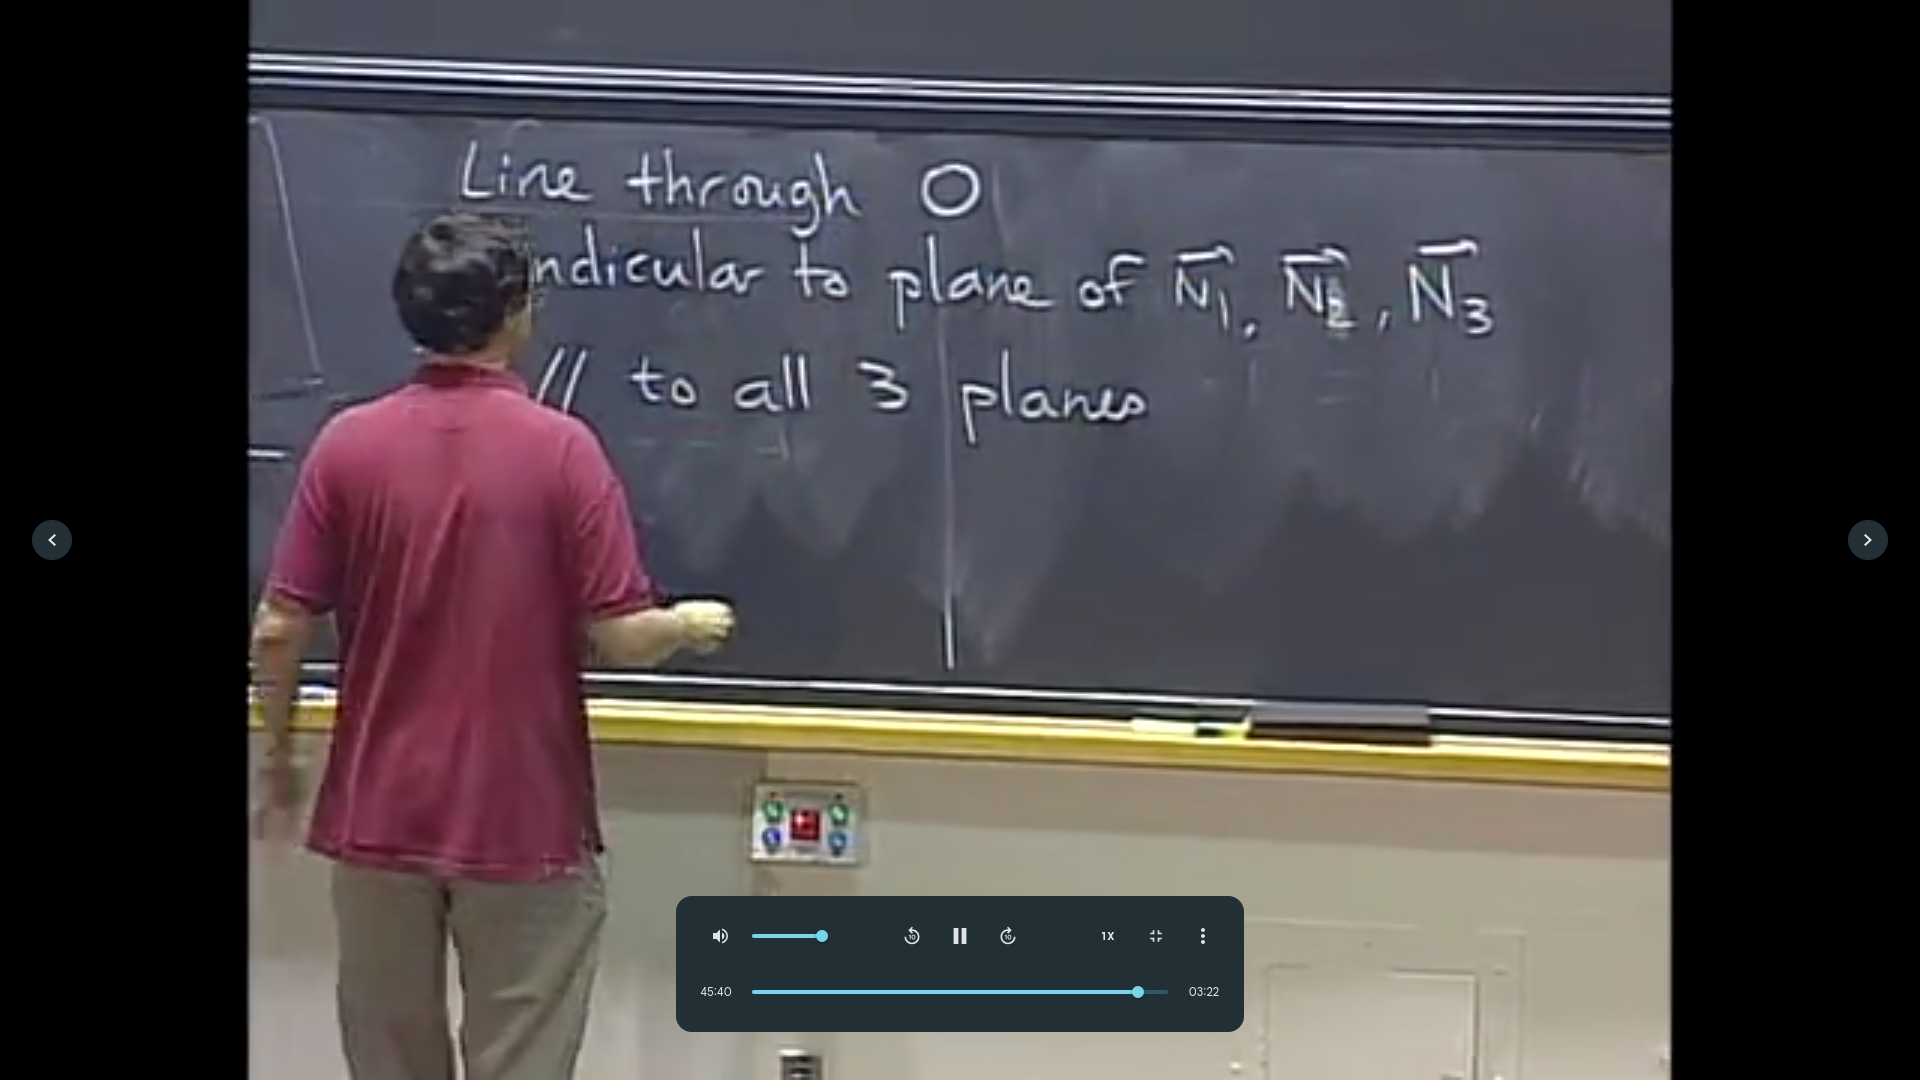 Line through O
ndicular to plane of N₁, N₂, N₃
// to all 3 planes
10 10 1X
45:40 03:22